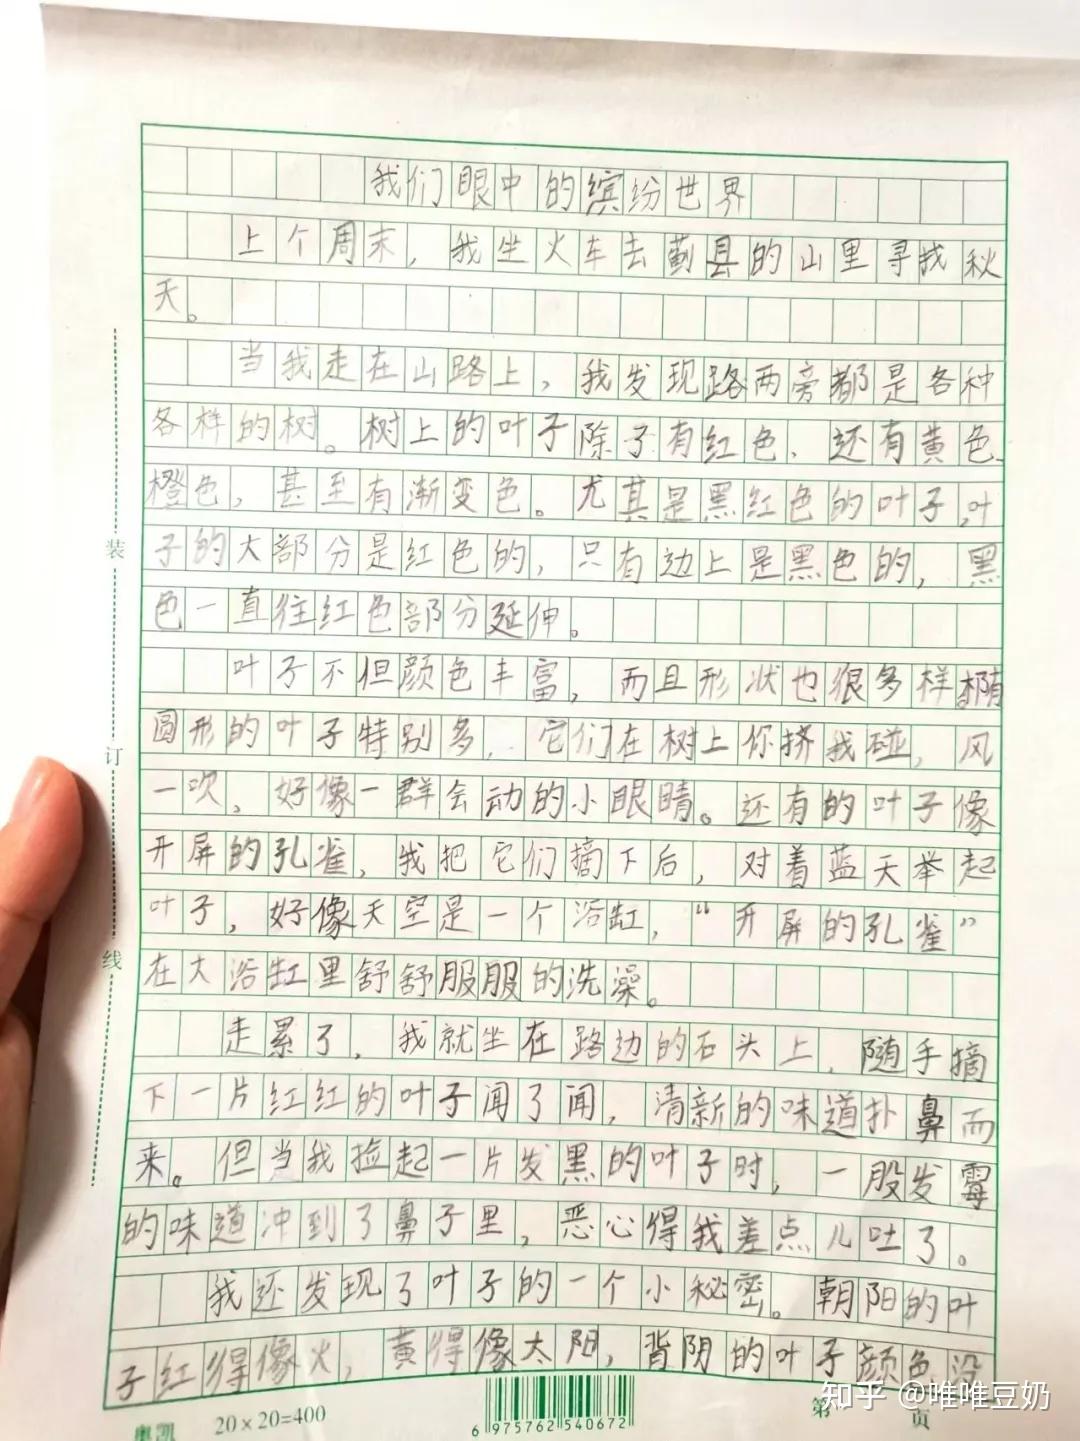 我们眼中的缤纷世界
上个周末，我坐火车去蓟县的山里寻找秋
天。
当我走在山路上，我发现路两旁都是各种
各样的树。树上的叶子除了有红色、还有黄色、
橙色，甚至有渐变色。尤其是黑红色的叶子，叶
子的大部分是红色的，只有边上是黑色的，黑
色一直往红色部分延伸。
叶子不但颜色丰富，而且形状也很多样。椭
圆形的叶子特别多，它们在树上你挤我碰，风
一吹，好像一群会动的小眼睛。还有的叶子像
开屏的孔雀，我把它们摘下后，对着蓝天举起
叶子，好像天空是一个浴缸，“开屏的孔雀”
在大浴缸里舒舒服服的洗澡。
走累了，我就坐在路边的石头上，随手摘
下一片红红的叶子闻了闻，清新的味道扑鼻而
来。但当我捡起一片发黑的叶子时，一股发霉
的味道冲到了鼻子里，恶心得我差点儿吐了。
我还发现了叶子的一个小秘密。朝阳的叶
子红得像火，黄得像太阳，背阴的叶子颜色没
装
订
线
奥凯
20×20=400
6 975762 540672
第 页
知乎 @唯唯豆奶